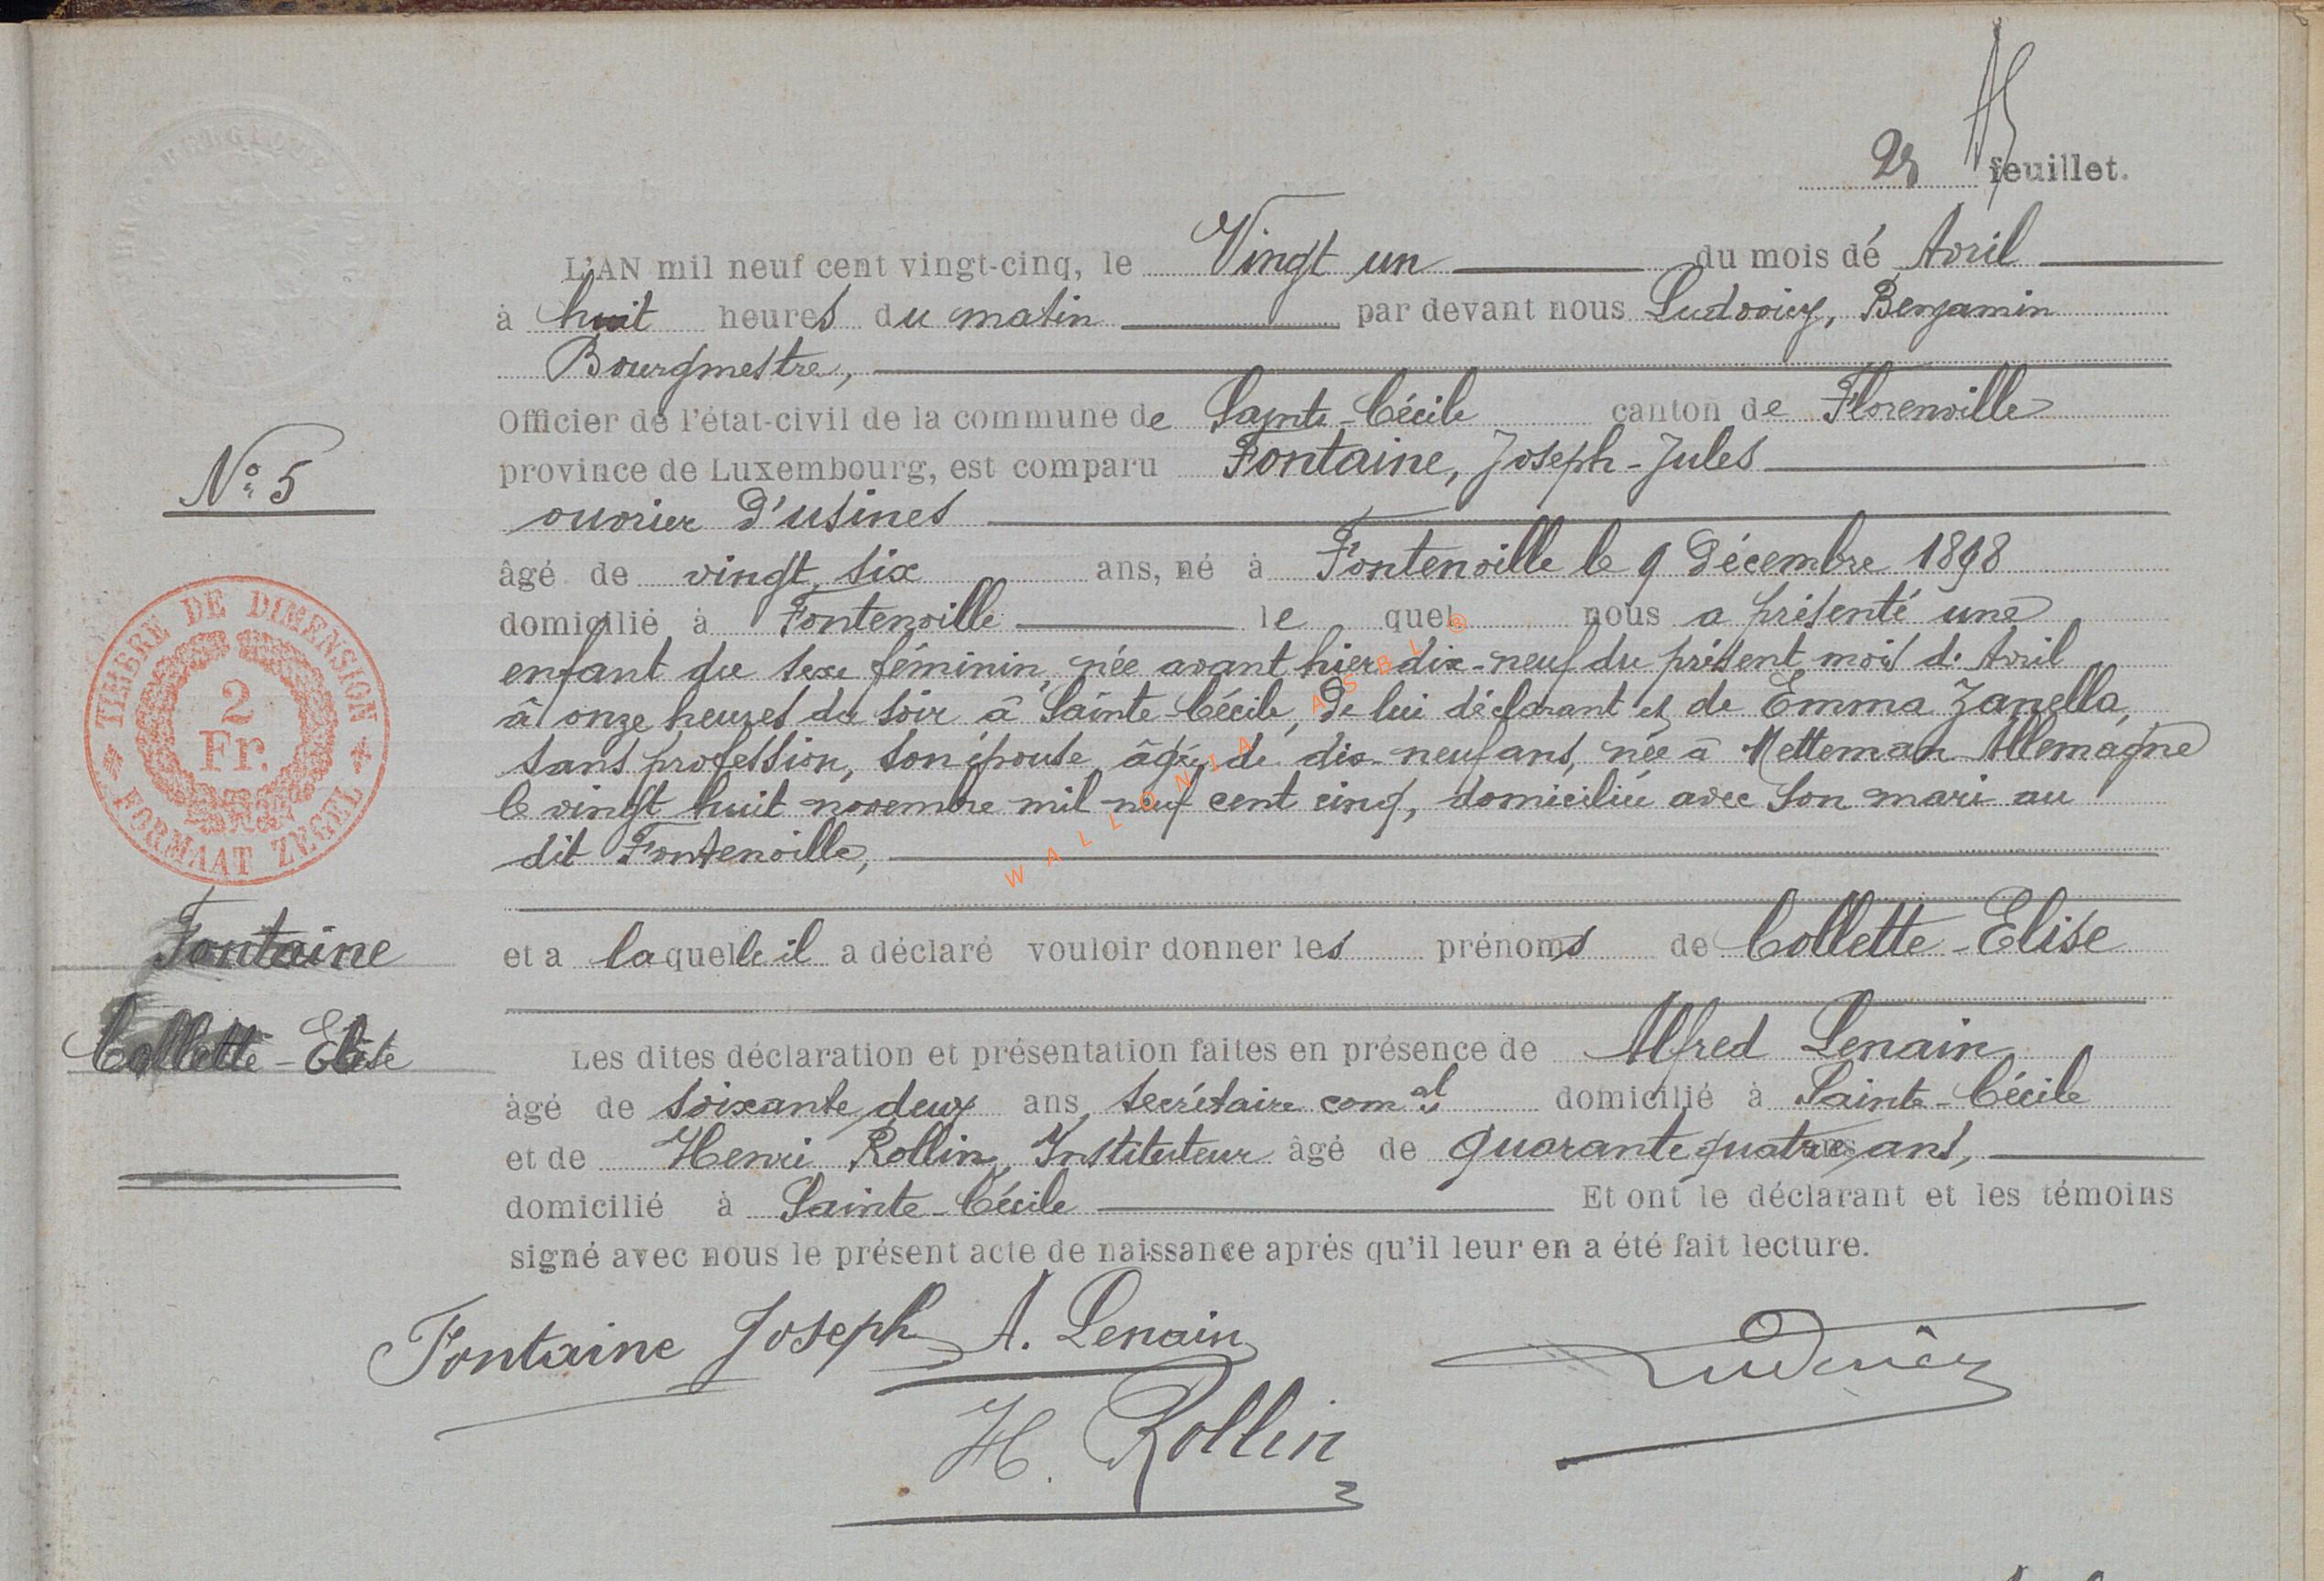 feuillet.
L'AN mil neuf cent vingt-cinq, le Vingt un du mois de Avril
à huit heures du matin par devant nous Ludovicy, Benjamin
Bourgmestre,
Officier de l'état-civil de la commune de Sainte-Cécile canton de Florenville
province de Luxembourg, est comparu Fontaine, Joseph-Jules
N° 5
ouvrier d'usines
âgé de vingt six ans, né à Fontenoille le 9 Décembre 1898
domicilié à Fontenoille le quel nous a présenté une
enfant du sexe féminin, née avant hier dix-neuf du présent mois de Avril
à onze heures du soir à Sainte-Cécile, De lui déclarant et de Emma Zanella,
sans profession, son épouse âgée de dix-neuf ans, née à Metteman Allemagne
le vingt huit novembre mil neuf cent cinq, domiciliée avec son mari au
dit Fontenoille,
TIMBRE DE DIMENSION
2
Fr.
FORMAAT ZEGEL
WALLONIA ASBL ©
Fontaine
Collette-Elise
et a laquelle il a déclaré vouloir donner les prénoms de Collette-Elise
Les dites déclaration et présentation faites en présence de Alfred Lenain
âgé de soixante deux ans, secrétaire comal domicilié à Sainte-Cécile
et de Henri Rollin, Instituteur âgé de quarante quatre ans,
domicilié à Sainte-Cécile Et ont le déclarant et les témoins
signé avec nous le présent acte de naissance après qu'il leur en a été fait lecture.
Fontaine Joseph A. Lenain
H. Rollin